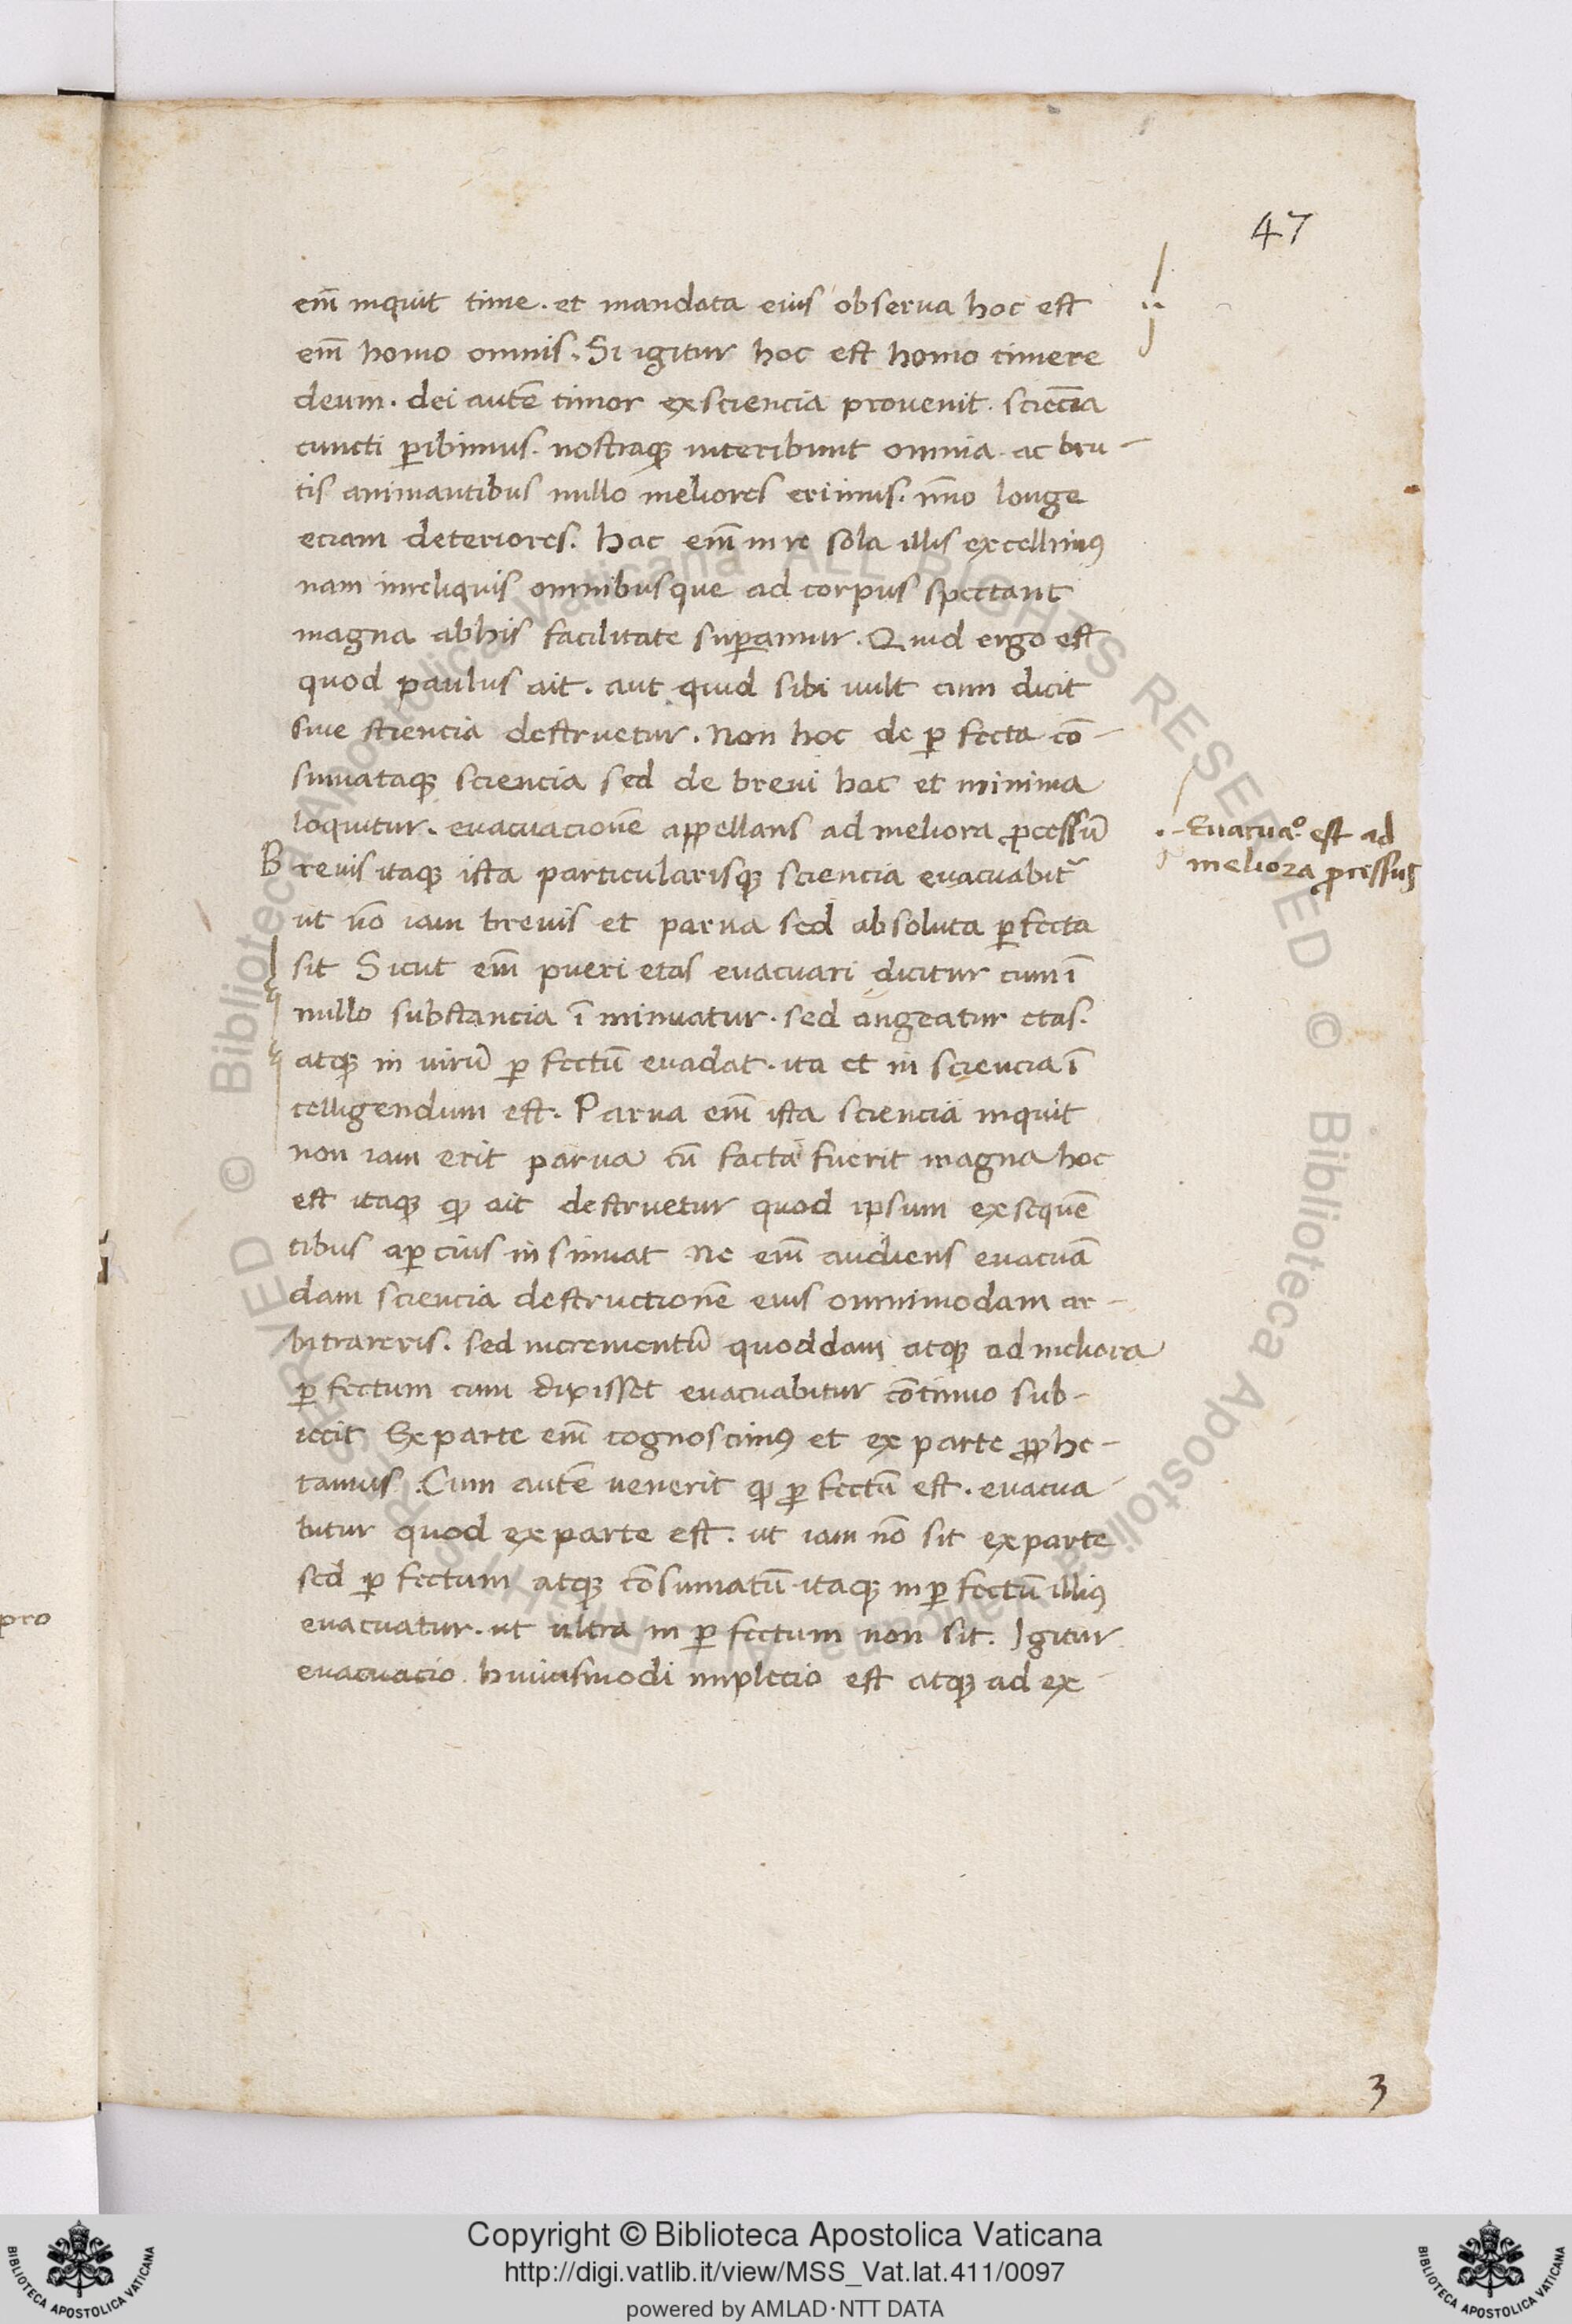 47
em̅ inquit time. et mandata eius observa hoc est
em̅ homo omnis. Si igitur hoc est homo timere
deum. dei aute̅ timor ex sciencia provenit. scie̅cia
cuncti ꝑibimus. nostraqꝫ interibunt omnia. ac bru-
tis animantibus nullo meliores erimus. im̅o longe
eciam deteriores. hac em̅ in re sola illis excellimꝰ
nam in reliquis omnibus que ad corpus spectant
magna ab his facilitate suꝑamur. Quid ergo est
quod paulus ait. aut quid sibi uult cum dicit
sive sciencia destruetur. Non hoc de ꝑfecta co̅-
sumataqꝫ sciencia sed de brevi hac et minima
loquitur. evacuacione̅ appellans ad meliora ꝓcessu̅
Brevis itaqꝫ ista particularisqꝫ sciencia evacuabit᷑
ut no̅ iam brevis et parva sed absoluta ꝑfecta
sit Sicut em̅ pueri etas evacuari dicitur cum i̅
nullo substancia i̅minuatur. sed augeatur etas.
atqꝫ in viru̅ ꝑfectu̅ evadat. ita et in sciencia i̅
telligendum est. Parva em̅ ista sciencia inquit
non iam erit parva cu̅ facta fuerit magna hoc
est itaqꝫ qd̅ ait destruetur quod ipsum ex seque̅
tibus aꝑcius insinuat Ne em̅ audiens evacua̅
dam sciencia destructione̅ eius omnimodam ar-
bitrareris. sed incrementu̅ quoddam atqꝫ ad meliora
ꝑfectum cum dixisset evacuabitur co̅tinuo sub-
iecit Ex parte em̅ cognoscimꝰ et ex parte ꝓphe-
tamus. Cum aute̅ venerit qd̅ ꝑfectu̅ est. evacua-
bitur quod ex parte est. ut iam no̅ sit ex parte
sed ꝑfectum atqꝫ co̅sumatu̅ itaqꝫ inꝑfectu̅ illiꝰ
evacuatur. ut ultra inꝑfectum non sit. Igitur
evacuacio huiusmodi implecio est atqꝫ ad ex-
.-Evacuaº. est ad
meliora ꝓcessus
pro
3
Copyright © Biblioteca Apostolica Vaticana
http://digi.vatlib.it/view/MSS_Vat.lat.411/0097
powered by AMLAD·NTT DATA
BIBLIOTECA APOSTOLICA VATICANA
BIBLIOTECA APOSTOLICA VATICANA